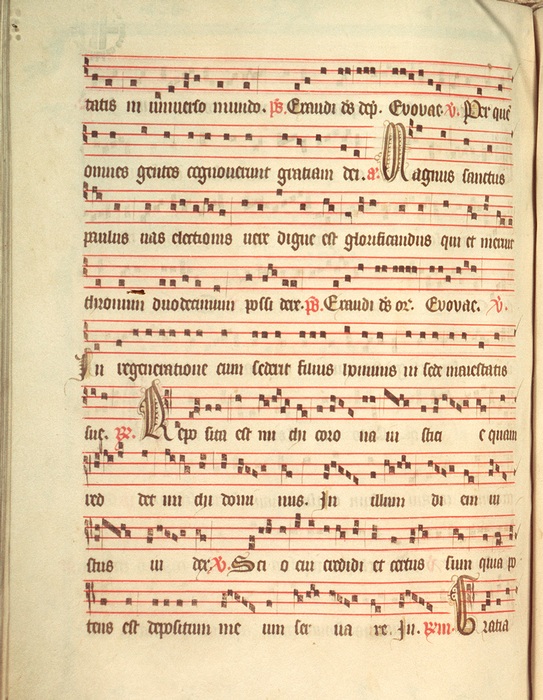 tatis in universo mundo. ps. Exaudi ds dep. Evovae. v. Per quē
omnes gentes cognoverunt gratiam dei. a. Magnus sanctus
paulus vas electionis vere digne est glorificandus qui et meruit
thronum duodecimum possidere. ps. Exaudi ds or. Evovae. v.
In regeneratione cum sederit filius hominis in sede maiestatis
sue. R. Reposita est mi chi coro na iu sticie quam
red det mi chi domi nus. In illum di em iu
stus iu dex. v. Scio cui credidi et certus sum quia po
tens est depositum me um ser va re. In. Rm. Gratia